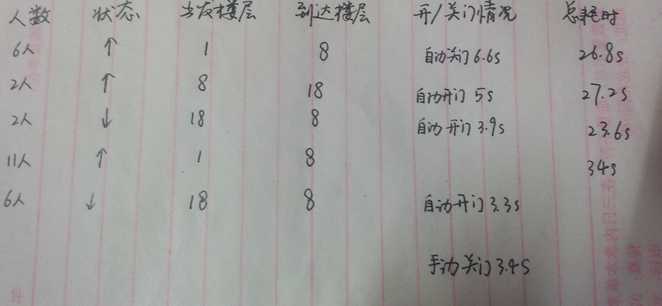 人数 状态 出发楼层 到达楼层 开/关门情况 总耗时
6人 ↑ 1 8 自动关门6.6s 26.8s
2人 ↑ 8 18 自动开门 5s 27.2s
2人 ↓ 18 8 自动开门 3.9s 23.6s
11人 ↑ 1 8 34s
6人 ↓ 18 8 自动开门3.3s
手动关门3.4s